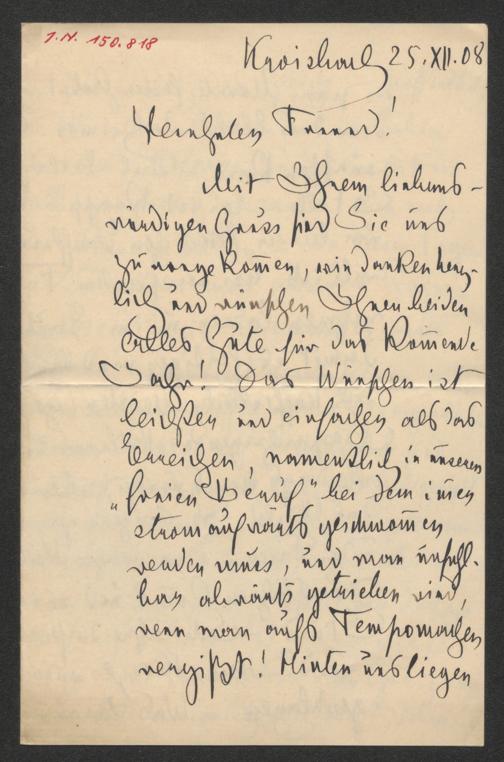 J.N. 150.818
Kroisbach 25.XII.08
Verehrter Freund!
Mit Ihrem liebens-
würdigen Gruss sind Sie uns
zuvorgekom̅en, wir danken herz-
lich und wünschen Ihnen beiden
Alles Gute für das Kom̅ende
Jahr! Das Wünschen ist
leichter und einfacher als das
Erreichen, namentlich in unserem
„freien Beruf" bei dem im̅er
stromaufwärts geschwom̅en
werden muss, und man unfehl-
bar abwärts getrieben wird,
wenn man aufs Tempomachen
vergißt! Hinter uns liegen